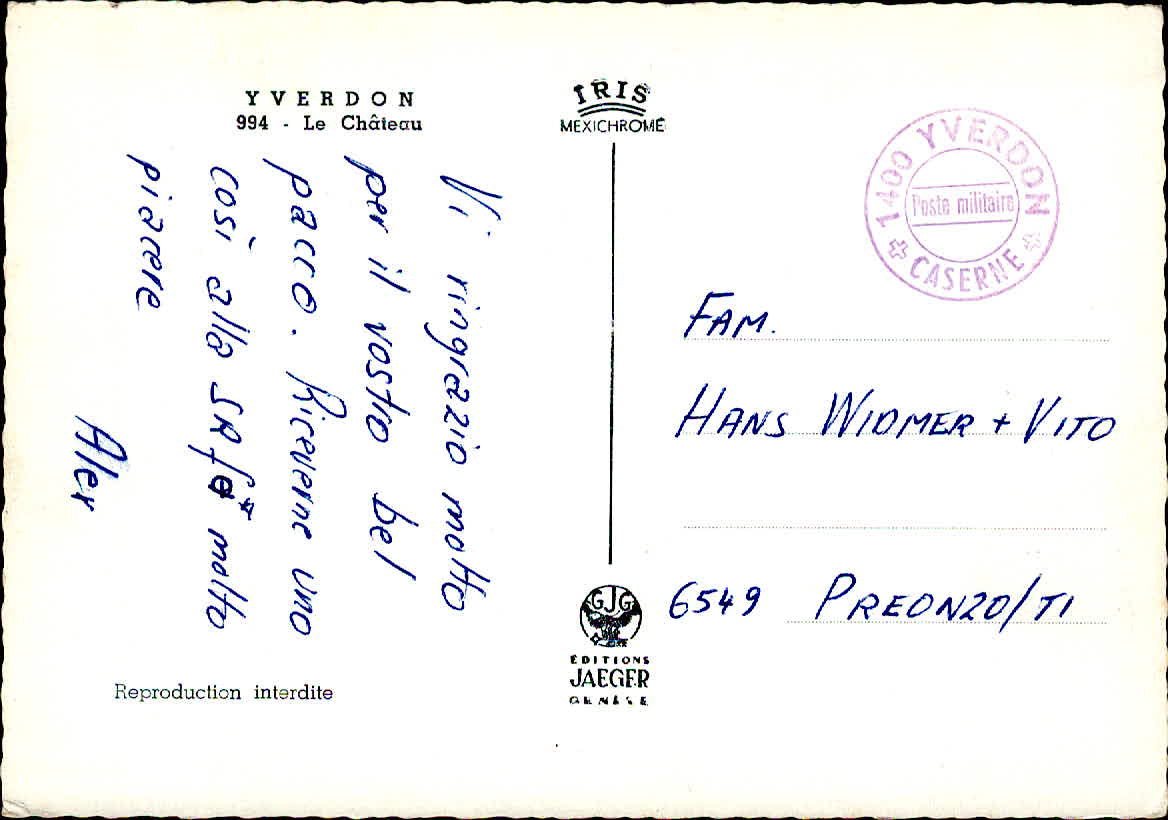 YVERDON
994 - Le Château
Vi ringrazio molto
per il vostro bel
pacco. Riceverne uno
così alla SR fa molto
piacere
Alex
Reproduction interdite
IRIS
MEXICHROME
GJG
ÉDITIONS
JAEGER
GENÈVE
1400 YVERDON
Poste militaire
CASERNE
FAM.
HANS WIDMER + VITO
6549 PREONZO/TI